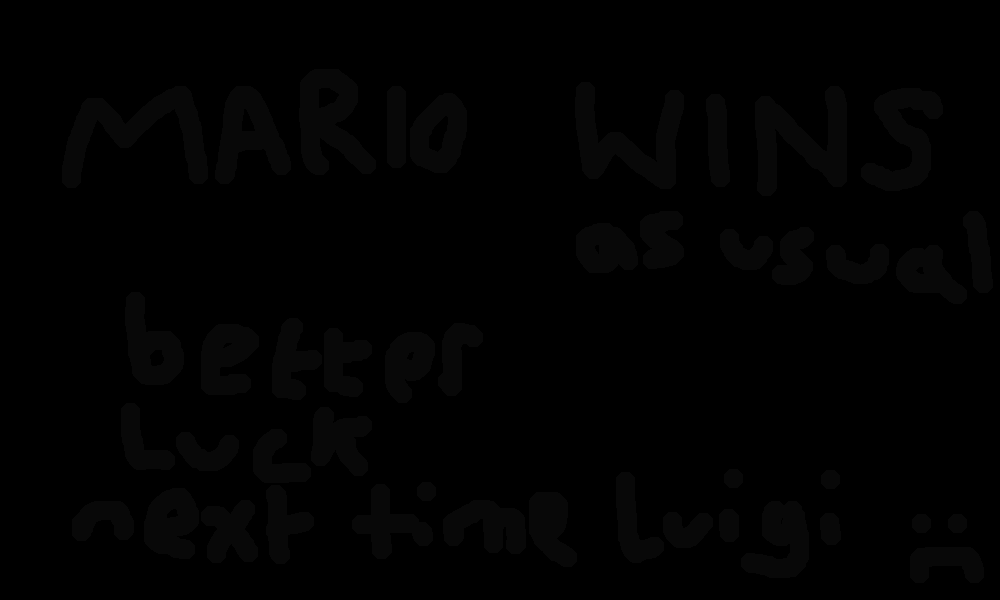 MARIO WINS
as usual
better
Luck
next time Luigi :(